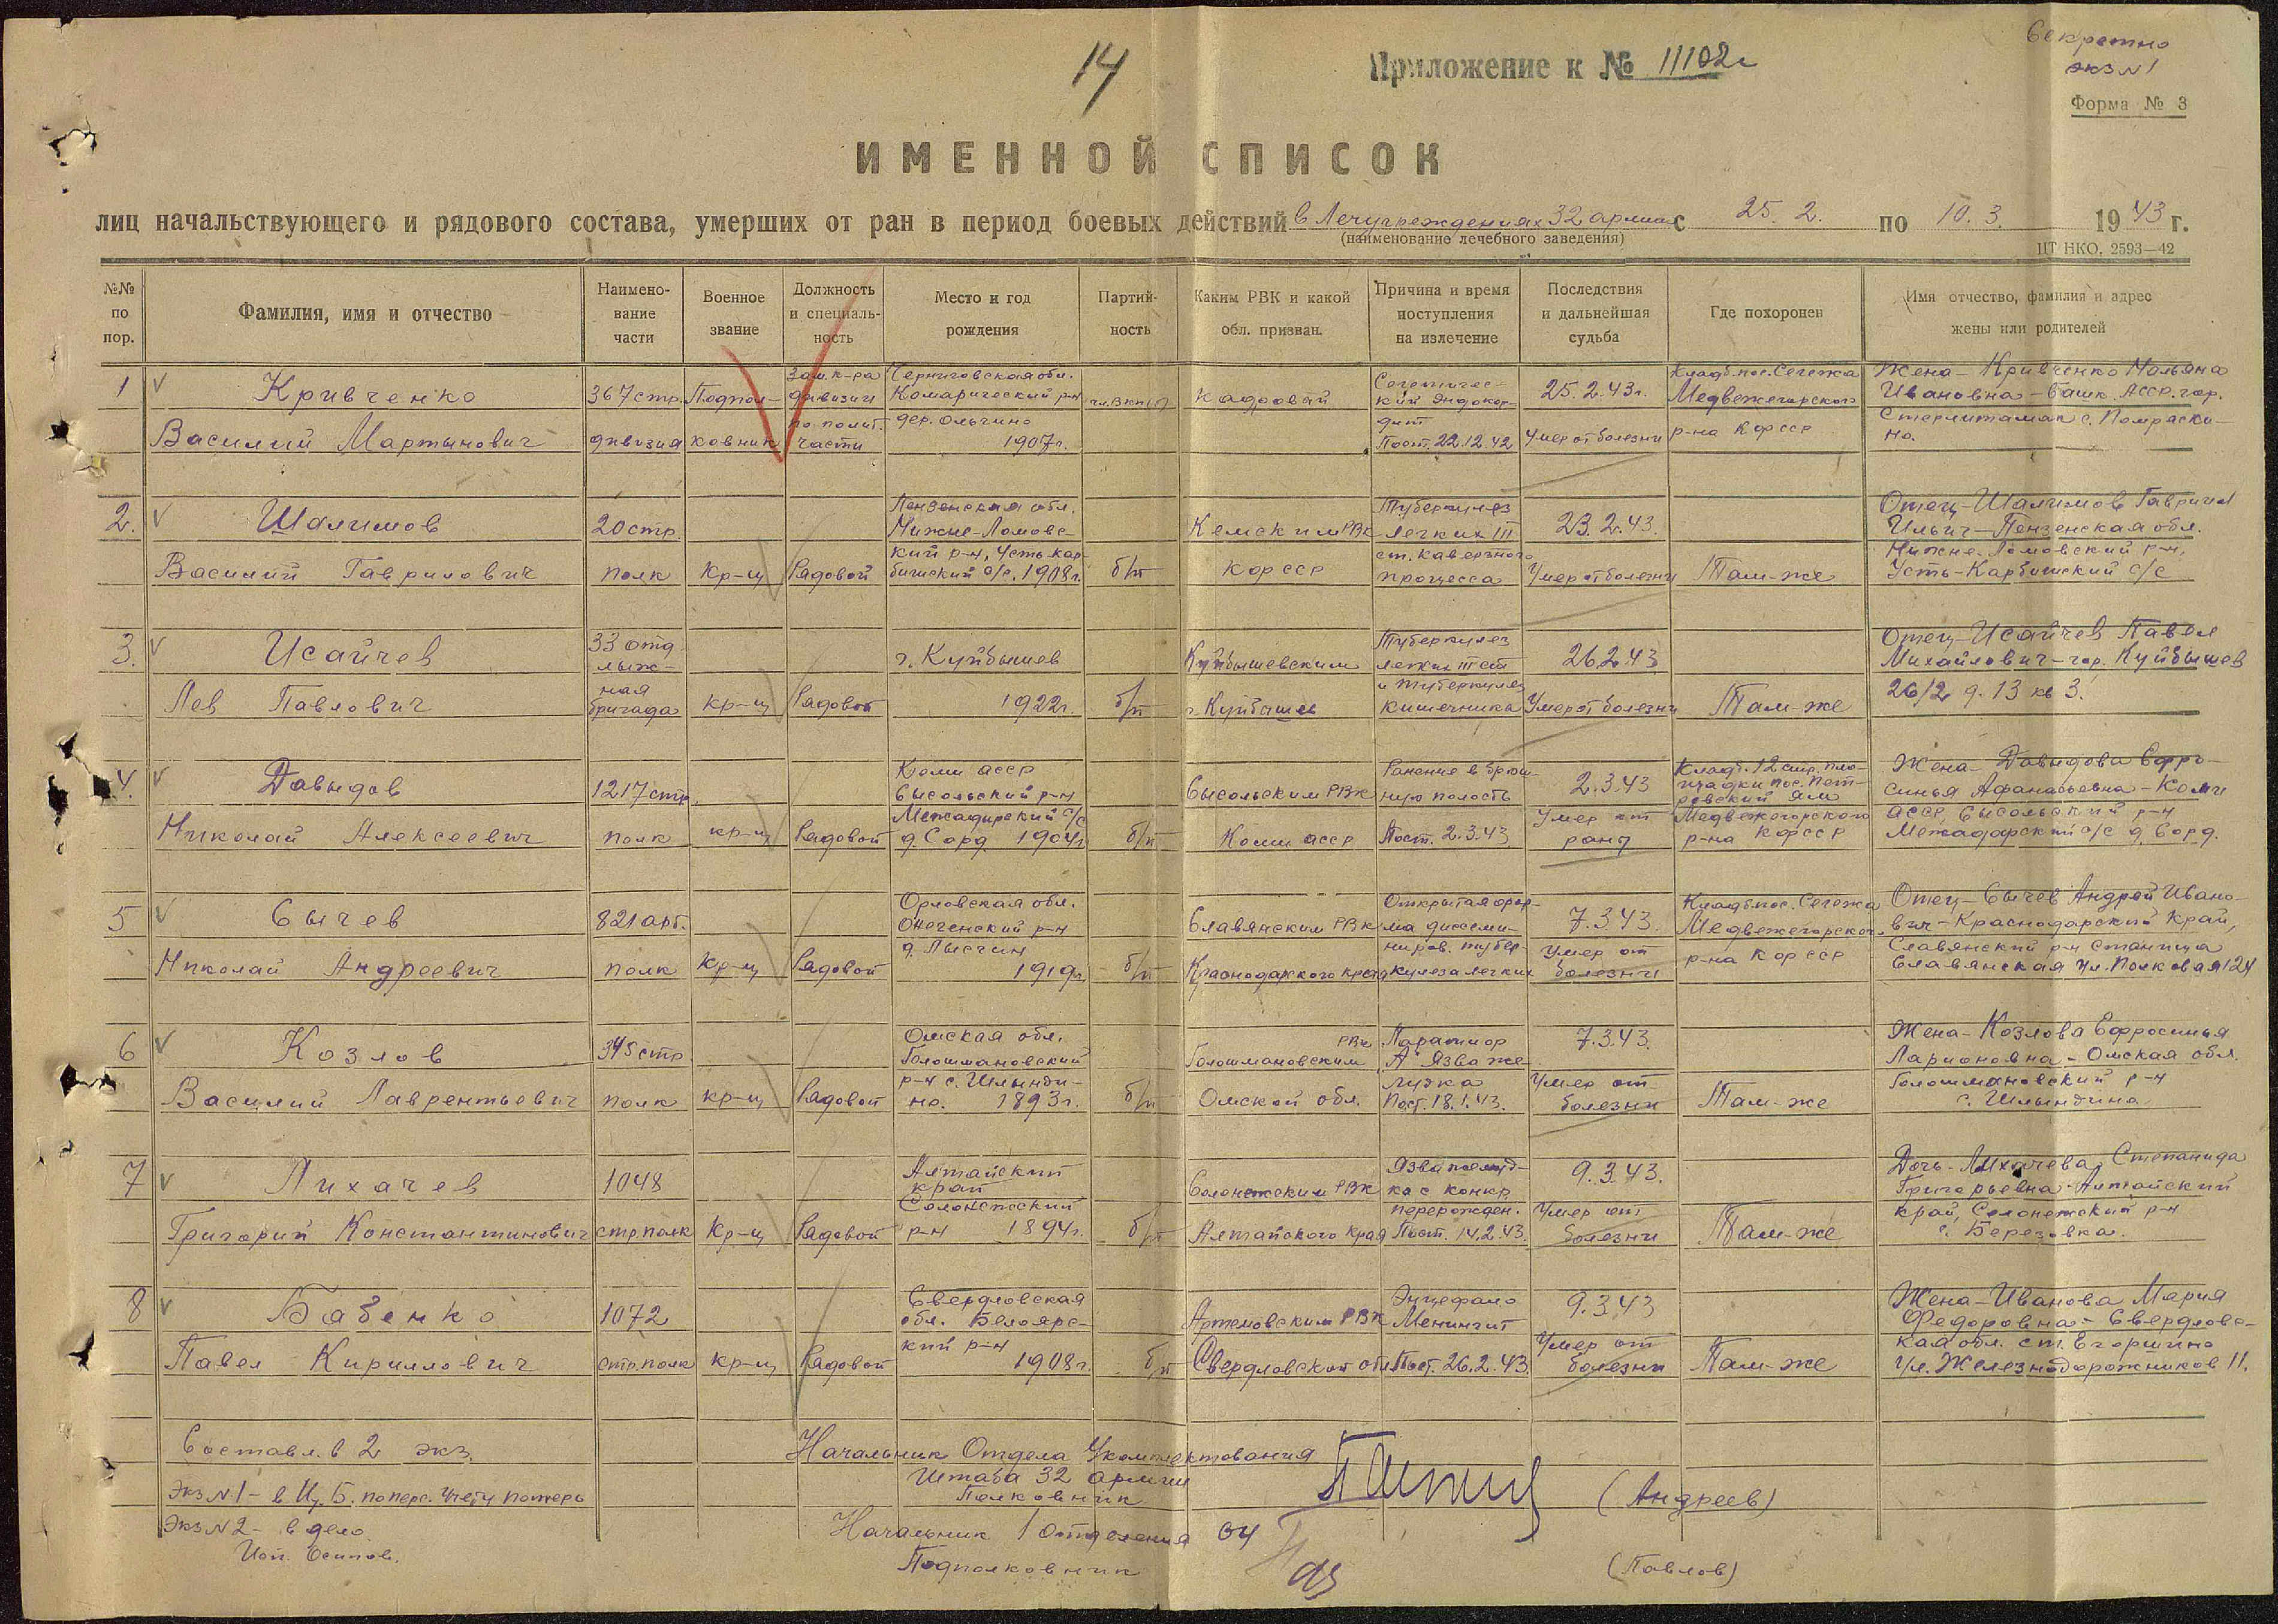 14
Приложение к № 11102с
Секретно
экз N 1
Форма № 3
ИМЕННОЙ СПИСОК
лиц начальствующего и рядового состава, умерших от ран в период боевых действий в Лечучреждениях 32 армии с 25. 2. по 10. 3. 1943 г.
(наименование лечебного заведения)
ЦТ НКО. 2593—42
№№ по пор.
Фамилия, имя и отчество
Наимено-
вание
части
Военное
звание
Должность
и специаль-
ность
Место и год
рождения
Партий-
ность
Каким РВК и какой
обл. призван.
Причина и время
поступления
на излечение
Последствия
и дальнейшая
судьба
Где похоронен
Имя отчество, фамилия и адрес
жены или родителей
1
Кривченко
Василий Мартынович
367 стр.
дивизия
Подпол-
ковник
Зам. к-ра
дивизии
по полит.
части
Черниговская обл.
Комарический р-н
дер. Ольгино
1907г.
чл. ВКП(б)
Кадровый
Септичес-
кий эндокар-
дит
Пост. 22.12.42
25.2.43г.
Умер от болезни
Кладб. пос. Сегежа
Медвежегорского
р-на КФССР
Жена - Кривченко Наталья
Ивановна - Башк. АССР. гор.
Стерлитамак с.
но.
2.
Шалимов
Василий Гаврилович
20 стр.
полк
Кр-ц
Рядовой
Пензенская обл.
Нижне-Ломовс-
кий р-н, Усть-Кар-
бишский с/с. 1908г.
б/п
Кемским РВК
КФССР
Туберкулез
легких III
ст. каверзного
процесса
23.2.43.
Умер от болезни
Там-же
Отец - Шалимов Гавриил
Ильич - Пензенская обл.
Нижне-Ломовский р-н,
Усть-Карбишский с/с
3.
Исайчев
Лев Павлович
33 отд.
лыж-
ная
бригада
кр-ц
Рядовой
г. Куйбышев
1922г.
б/п
Куйбышевским
г. Куйбышев
Туберкулез
легких III ст
и туберкулез
кишечника
26.2.43
Умер от болезни
Там-же
Отец - Исайчев Павел
Михайлович - гор. Куйбышев
26/2 д. 13 кв 3.
4.
Давыдов
Николай Алексеевич
1217 стр.
полк
кр-ц
Рядовой
Коми АССР
Сысольский р-н
Межадырский с/с
д. Сорд 1904г
б/п
Сысольским РВК
Коми АССР
Ранение в брюш-
ную полость
Пост. 2.3.43
2.3.43
Умер от
ран
Кладб. 12 стр. пло-
щадки пос. Пет-
ровский ям
Медвежегорского
р-на КФССР
Жена - Давыдова Ефро-
синья Афанасьевна - Коми
АССР, Сысольский р-н
Межадорский с/с д. Сорд.
5
Сычев
Николай Андреевич
821 арт.
полк
Кр-ц
Рядовой
Орловская обл.
р-н
д. Лысчин
1919г
б/п
Славянским РВК
Краснодарского края
Открытая фор-
ма диссеми-
ниров. тубер-
кулеза легких
7.3.43
Умер от
болезни
Кладб. пос. Сегежа
Медвежегорского
р-на КФССР
Отец - Сычев Андрей Ивано-
вич - Краснодарский край,
Славянский р-н станица
Славянская ул. Полковая 124
6
Козлов
Василий Лаврентьевич
345 стр
полк
кр-ц
Рядовой
Омская обл.
Голышмановский
р-н с. Шлынди-
но. 1893г.
б/п
Голышмановским РВК
Омской обл.
Паратиф
А Язва же-
лудка
Пост. 18.1.43.
7.3.43.
Умер от
болезни
Там-же
Жена - Козлова Ефросинья
Ларионовна - Омская обл.
Голышмановский р-н
с. Шлындина
7
Лихачев
Григорий Константинович
1048
стр. полк
Кр-ц
Рядовой
Алтайский
край
Солонешский
р-н 1894г.
б/п
Солонешским РВК
Алтайского края
Язва желуд-
ка с канкр.
перерожден.
Пост. 14.2.43.
9.3.43.
Умер от
болезни
Там-же
Дочь - Лихачева Степанида
Григорьевна - Алтайский
край, Солонешский р-н
с. Березовка.
8
Бабенко
Павел Кириллович
1072
стр. полк
кр-ц
Рядовой
Свердловская
обл. Белоярс-
кий р-н
1908г.
б/п
Артемовским РВК
Свердловской обл
Энцефало
Менингит
Пост. 26.2.43.
9.3.43
Умер от
болезни
Там-же
Жена - Иванова Мария
Федоровна - Свердловс-
кая обл. ст. Егоршино
ул. Железнодорожников 11.
Составл. в 2 экз.
Экз N 1 - в Ц. Б. по перс. учету потерь
Экз N 2 - в дело.
Исп. Осипов.
Начальник Отдела Укомплектования
Штаба 32 армии
Полковник
(Андреев)
Начальник 1 отделения ОУ
Подполковник
(Павлов)